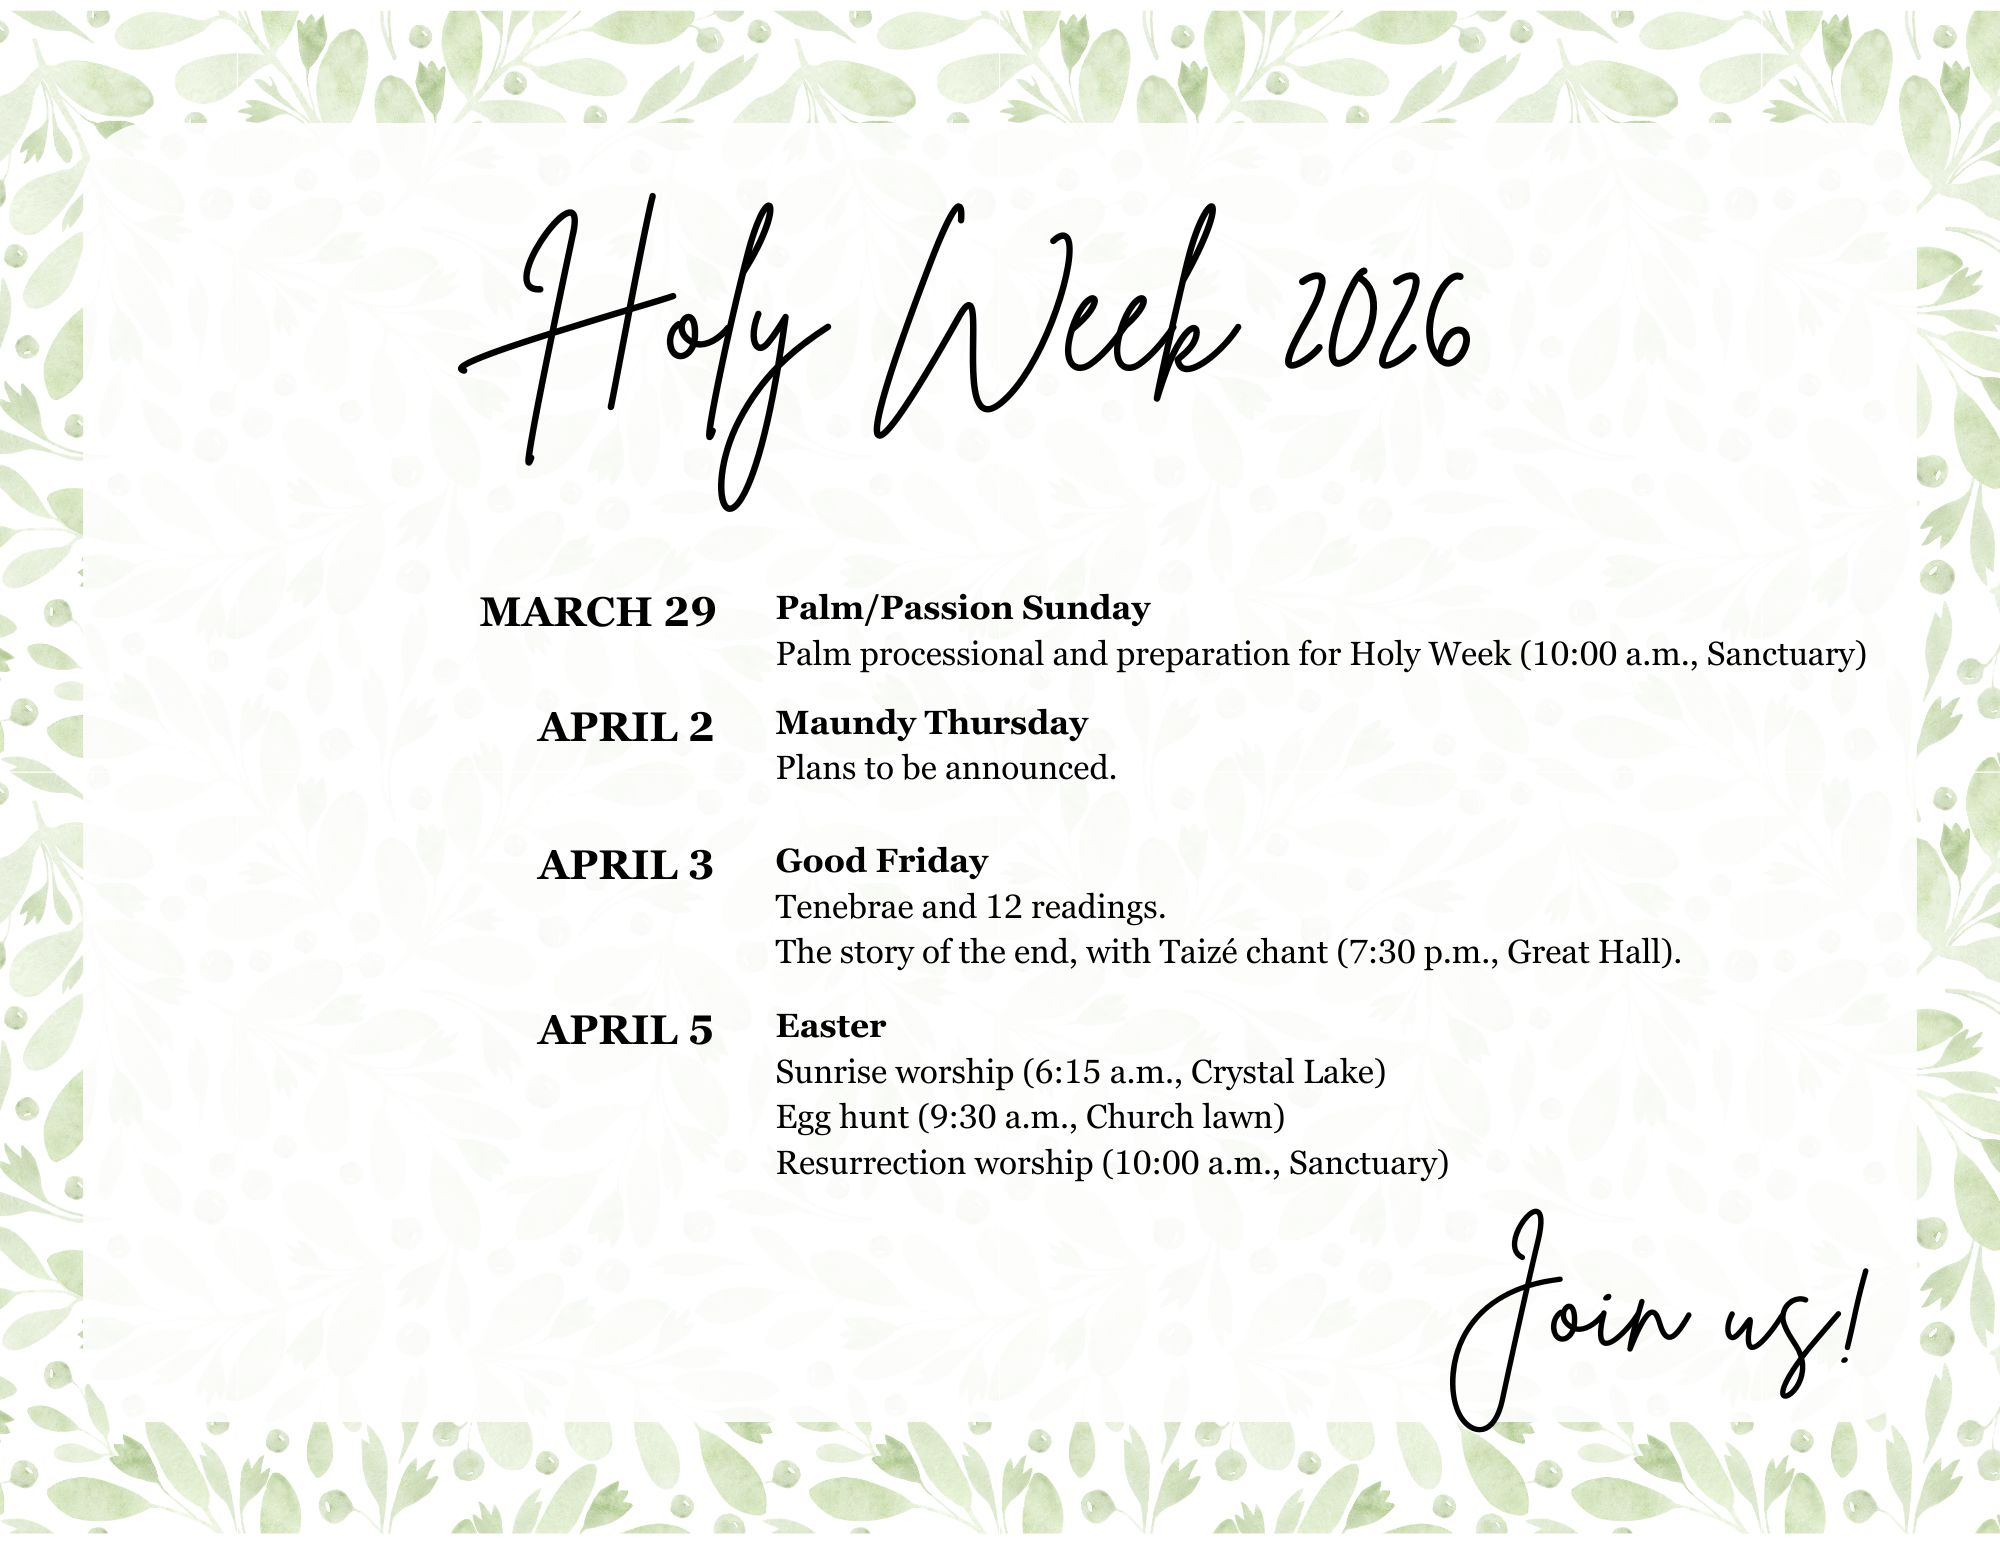 Holy Week 2026
MARCH 29
Palm/Passion Sunday
Palm processional and preparation for Holy Week (10:00 a.m., Sanctuary)
APRIL 2
Maundy Thursday
Plans to be announced.
APRIL 3
Good Friday
Tenebrae and 12 readings.
The story of the end, with Taizé chant (7:30 p.m., Great Hall).
APRIL 5
Easter
Sunrise worship (6:15 a.m., Crystal Lake)
Egg hunt (9:30 a.m., Church lawn)
Resurrection worship (10:00 a.m., Sanctuary)
Join us!